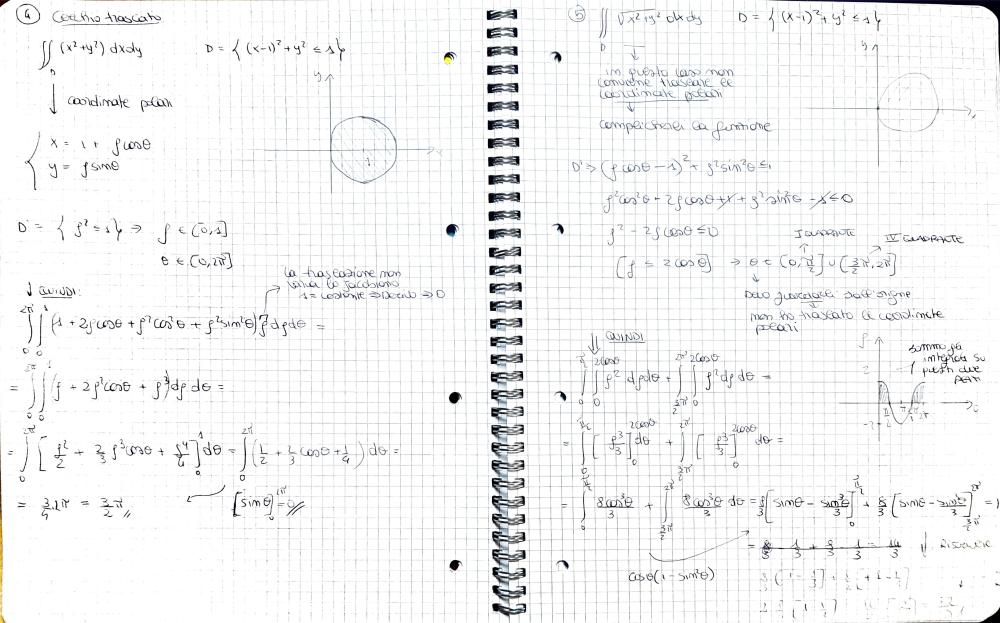 ④ Cerchio traslato
∬_D (x²+y²) dxdy   D = { (x-1)²+y² ≤ 1 }
↓ coordinate polari
{ x = 1 + ρcosθ
y = ρsinθ
y
x
1
D' = { ρ² = 1 } ⇒ ρ ∈ [0,1]
θ ∈ [0,2π]
la traslazione non
varia lo Jacobiano
↓ QUINDI:
∫₀^2π ∫₀^1 (1 + 2ρcosθ + ρ²cos²θ + ρ²sin²θ) ρ dρdθ =
= ∫₀^2π ∫₀^1 (ρ + 2ρ²cosθ + ρ³) dρ dθ =
= ∫₀^2π [ρ²/2 + 2/3 ρ³cosθ + ρ⁴/4]₀^1 dθ = ∫₀^2π (1/2 + 2/3 cosθ + 1/4) dθ =
= 3/4 · 2π = 3/2 π
[sinθ]₀^2π = 0
⑤ ∬_D √(x²+y²) dxdy   D = { (x-1)²+y² ≤ 1 }
↓
in questo caso non
conviene traslare le
coordinate polari
↓
complicherei la funzione
y
x
D' ⇒ (ρcosθ - 1)² + ρ²sin²θ ≤ 1
ρ²cos²θ - 2ρcosθ + 1 + ρ²sin²θ - 1 ≤ 0
ρ² - 2ρcosθ ≤ 0
I QUADRANTE
IV QUADRANTE
[ρ ≤ 2cosθ] ⇒ θ ∈ [0, π/2] ∪ [3/2π, 2π]
↓
non ho traslato le coordinate
polari
QUINDI
∫₀^π/2 ∫₀^2cosθ ρ² dρdθ + ∫_3/2π^2π ∫₀^2cosθ ρ² dρ dθ =
= ∫₀^π/2 [ρ³/3]₀^2cosθ dθ + ∫_3/2π^2π [ρ³/3]₀^2cosθ dθ =
= ∫₀^π/2 8cos³θ/3 + ∫_3/2π^2π 8cos³θ/3 dθ = 8/3 [sinθ - sin³θ/3]₀^π/2 + 8/3 [sinθ - sin³θ/3]_3/2π^2π =
cosθ(1 - sin²θ)
ρ
2
-2
integrali su
questi due